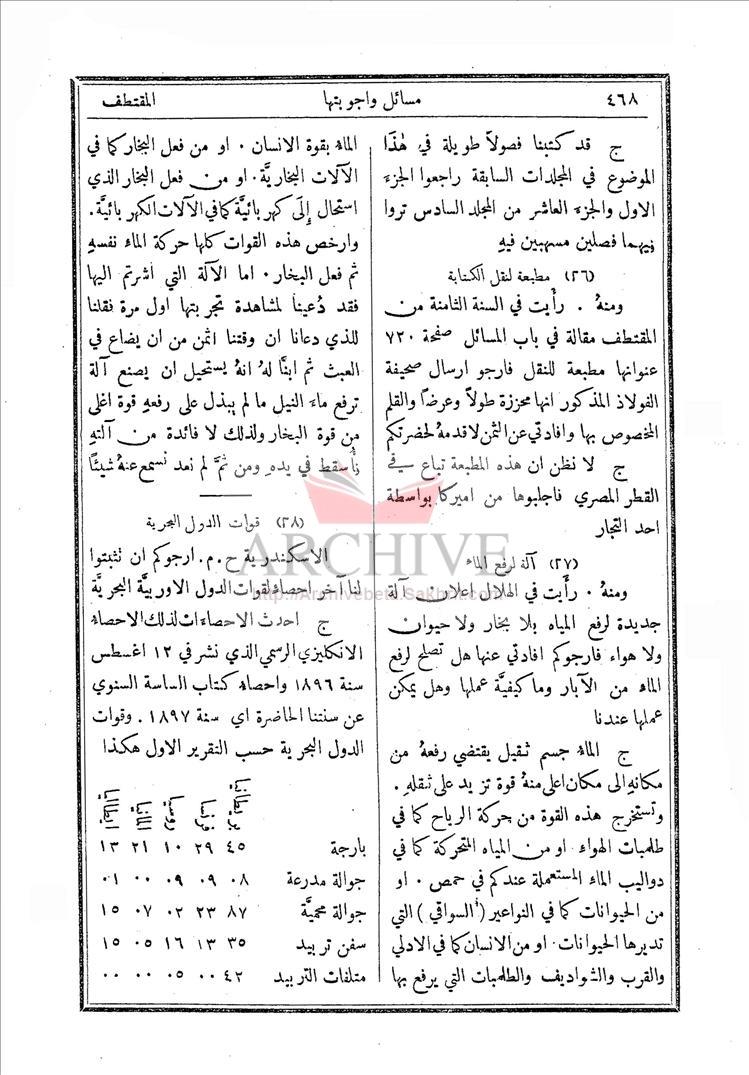 ٤٦٨
مسائل واجوبتها
المقتطف
ج قد كتبنا فصولاً طويلة في هٰذَا
الموضوع في المجلدات السابقة راجعوا الجزء
الاول والجزء العاشر من المجلد السادس تروا
فيهما فصلين مسهبين فيهِ
(٢٦) مطبعة لنقل الكتابة
ومنهُ . رأَيت في السنة الثامنة من
المقتطف مقالة في باب المسائل صفحة ٧٢٠
عنوانها مطبعة للنقل فارجو ارسال صحيفة
الفولاذ المذكور انها محززة طولاً وعرضاً والقلم
المخصوص بها وافادتي عن الثمن لاقدمهُ لحضرتكم
ج لا نظن ان هذه المطبعة تباع في
القطر المصري فاجلبوها من اميركا بواسطة
احد التجار
(٢٧) آلة لرفع الماء
ومنهُ . رأَيت في الهلال اعلان آلة
جديدة لرفع المياه بلا بخار ولا حيوان
ولا هواء فارجوكم افادتي عنها هل تصلح لرفع
الماء من الآبار وما كيفيَّة عملها وهل يمكن
عملها عندنا
ج الماء جسم ثقيل يقتضي رفعهُ من
مكانهِ الى مكان اعلى منهُ قوة تزيد على ثقلهِ .
وتستخرج هذه القوة من حركة الرياح كما في
طلمبات الهواء او من المياه المتحركة كما في
دواليب الماء المستعملة عندكم في حمص . او
من الحيوانات كما في النواعير (السواقي) التي
تديرها الحيوانات . او من الانسان كما في الادلي
والقرب والشواديف والطلمبات التي يرفع بها
الماء بقوة الانسان . او من فعل البخار كما في
الآلات البخاريَّة . او من فعل البخار الذي
استحال إِلَى كهربائيَّة كما في الآلات الكهربائيَّة .
وارخص هذه القوات كلها حركة الماء نفسهِ
ثم فعل البخار . اما الآلة التي اشرتم اليها
فقد دُعينا لمشاهدة تجربتها اول مرة نقلنا
للذي دعانا ان وقتنا اثمن من ان يضاع في
العبث ثم ابنَّا لهُ انهُ يستحيل ان يصنع آلة
ترفع ماء النيل ما لم يبذل على رفعهِ قوة اغلى
من قوة البخار ولذلك لا فائدة من آلتهِ
فأُسقط في يدهِ ومن ثمَّ لم نعد نسمع عنهُ شيئاً
(٢٨) قوات الدول البحرية
الاسكندرية ح . م . ارجوكم ان تثبتوا
لنا آخر احصاء لقوات الدول الاوربيَّة البحريَّة
ج احدث الاحصاءات لذلك الاحصاء
الانكليزي الرسمي الذي نشر في ١٢ اغسطس
سنة ١٨٩٦ واحصاء كتاب الساسة السنوي
عن سنتنا الحاضرة اي سنة ١٨٩٧ . وقوات
الدول البحرية حسب التقرير الاول هكذا
بريطانيا فرنسا روسيا المانيا ايطاليا
بارجة ٤٥ ٢٩ ١٠ ٢١ ١٣
جوالة مدرعة ٠٨ ٠٩ ٠٩ ٠٠ ٠١
جوالة محميَّة ٨٧ ٢٣ ٠٢ ٠٧ ١٥
سفن تربيد ٣٥ ١٣ ١٦ ٠٥ ١٥
متلفات التربيد ٤٢ ٠٠ ٠٥ ٠٠ ٠٠
ARCHIVE